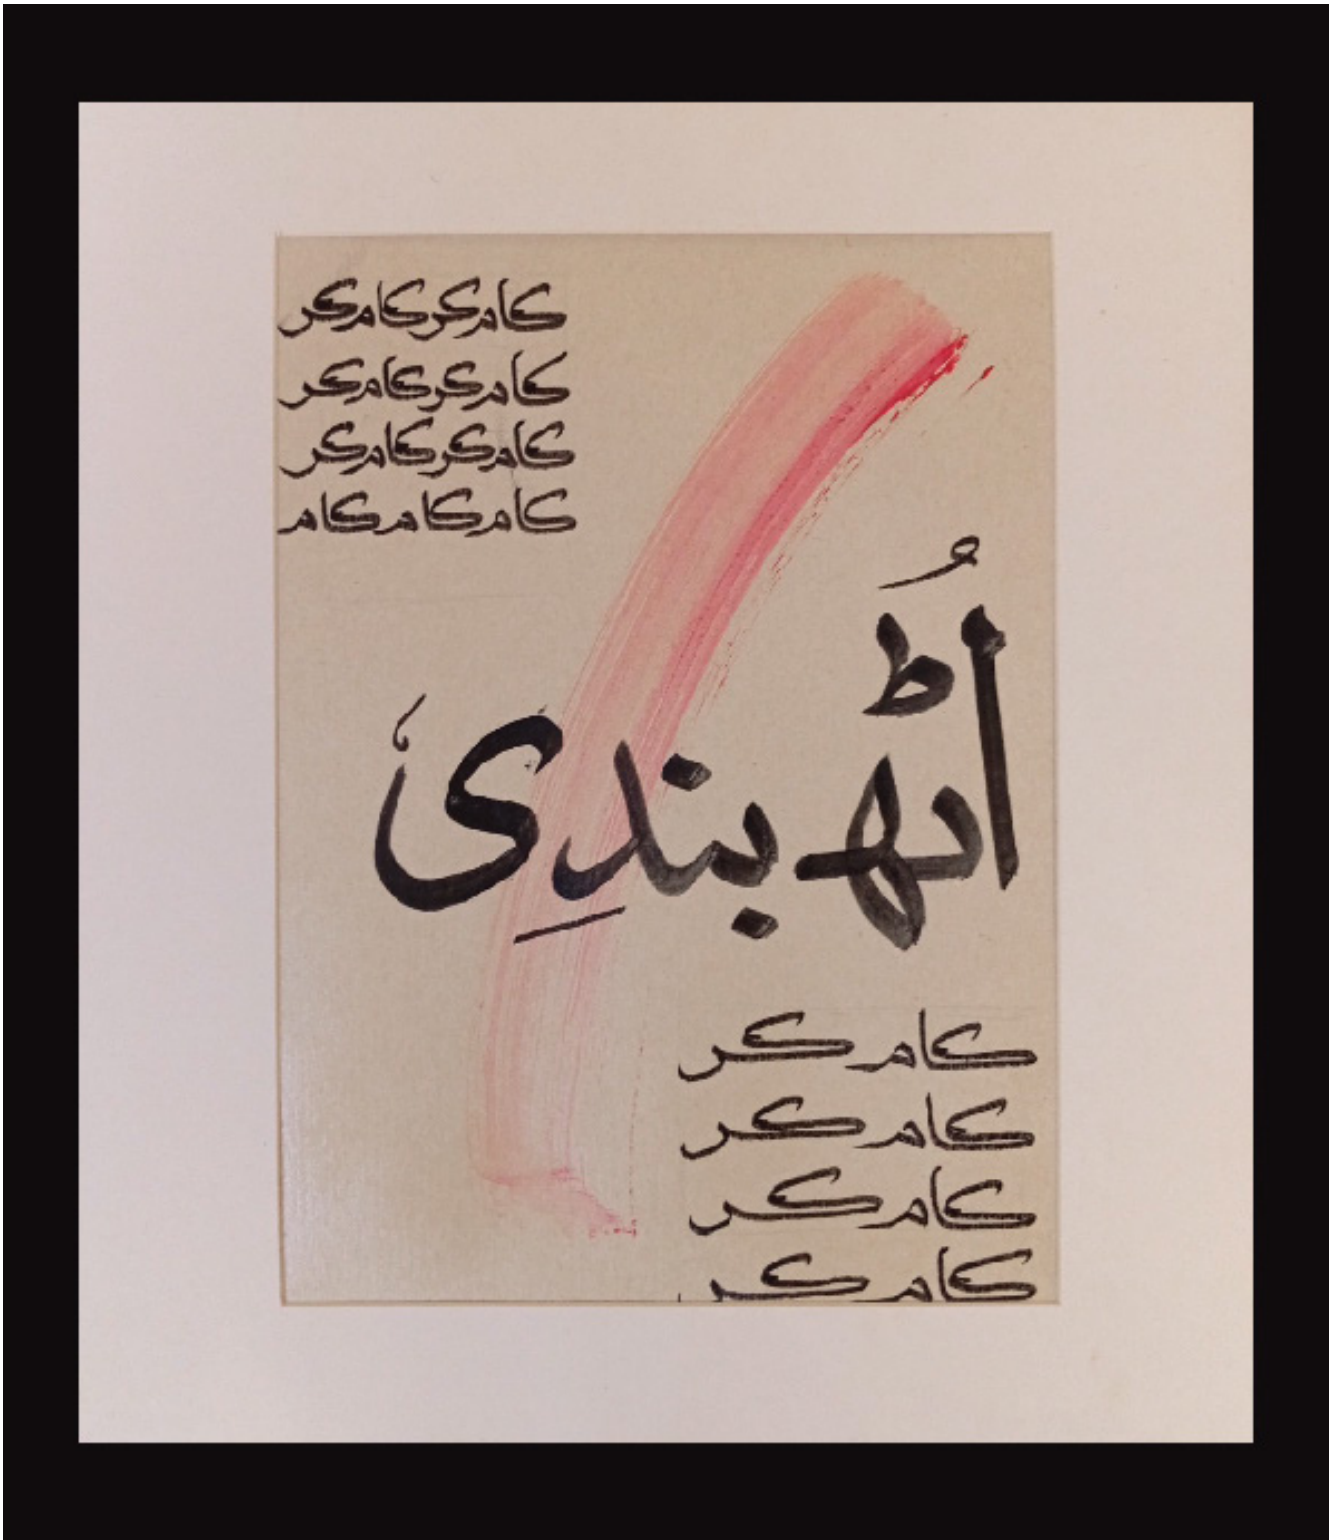 کام کر کام کر
کام کر کام کر
کام کر کام کر
کام کام کام
اُٹھ بندِیٔ
کام کر
کام کر
کام کر
کام کر